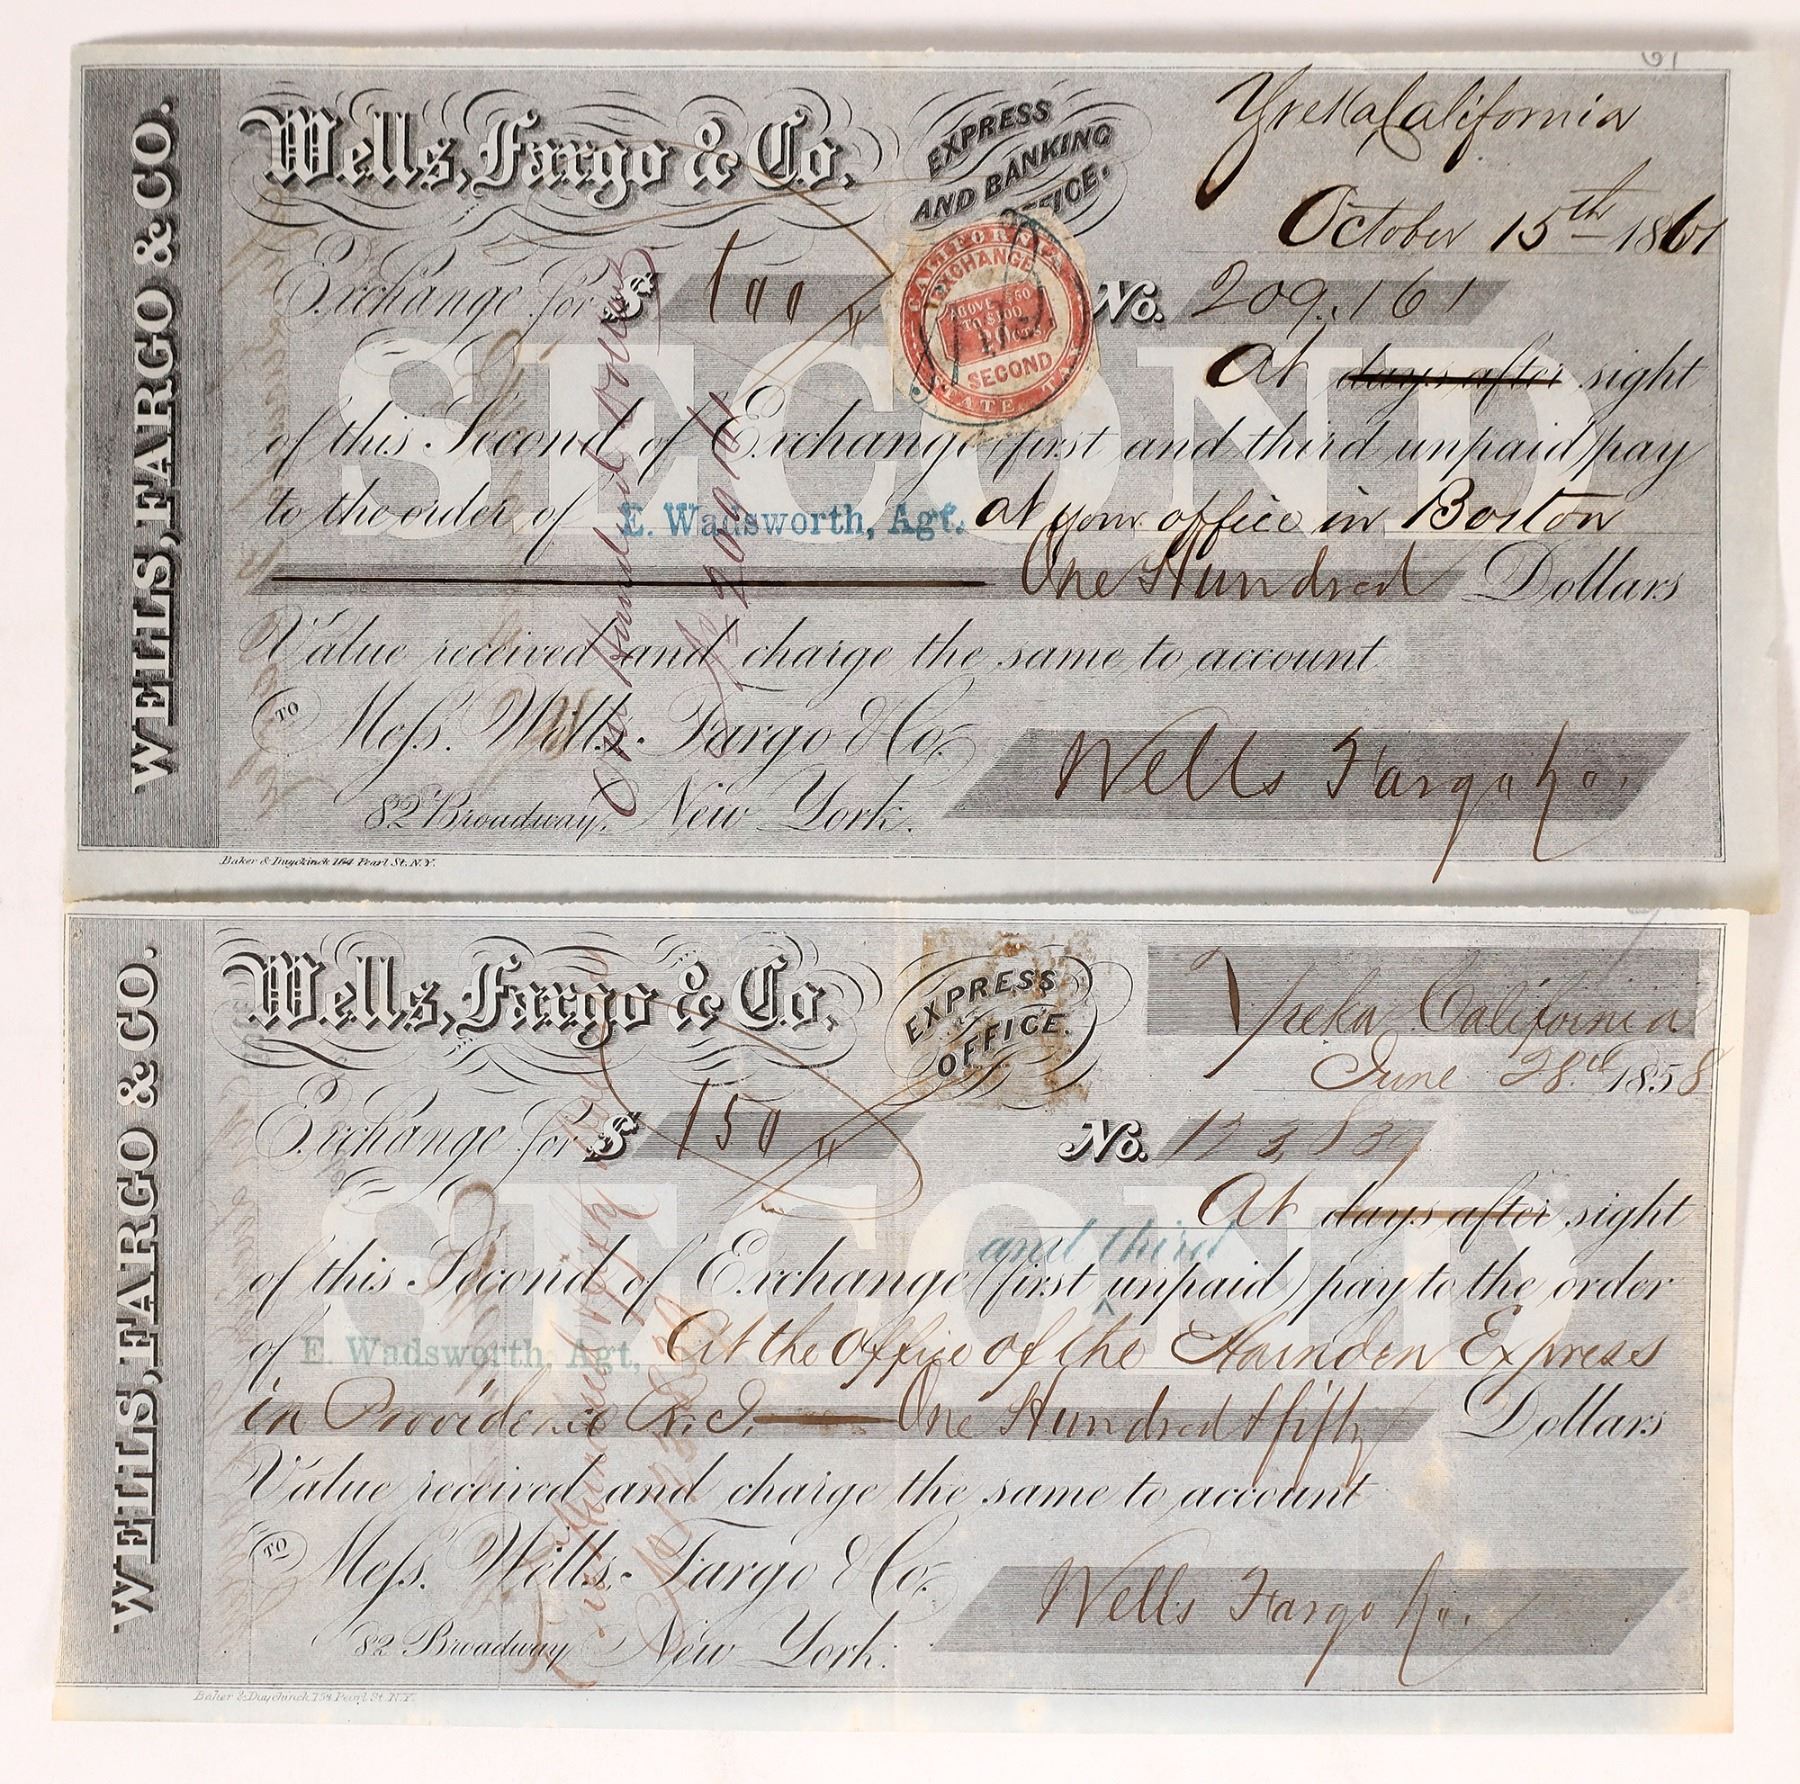 WELLS, FARGO & CO.
Wells, Fargo & Co.
EXPRESS
AND BANKING
OFFICE.
Yreka California
October 15th 1861
Exchange for $ 100
CALIFORNIA
EXCHANGE
ABOVE $50
TO $100
SECOND
STATE TAX
No. 209,161
SECOND
At days after sight
of this Second of Exchange (first and third unpaid) pay
to the order of E. Wadsworth, Agt. at your office in Boston
One Hundred Dollars
Value received and charge the same to account
TO Mess. Wells, Fargo & Co.
82 Broadway, New York.
Wells Fargo & Co.
One Hundred Dollars
Baker & Duyckinck 158 Pearl St. N.Y.
WELLS, FARGO & CO.
Wells, Fargo & Co.
EXPRESS
OFFICE.
Yreka California
June 28th 1858
Exchange for $ 150
No. 123,839
SECOND
At days after sight
and third
of this Second of Exchange (first ^ unpaid) pay to the order
of E. Wadsworth, Agt, At the Office of the Harnden Express
in Providence R.I. One Hundred & fifty Dollars
Value received and charge the same to account
TO Mess. Wells, Fargo & Co.
82 Broadway New York.
Wells Fargo & Co.
Baker & Duyckinck 158 Pearl St. N.Y.